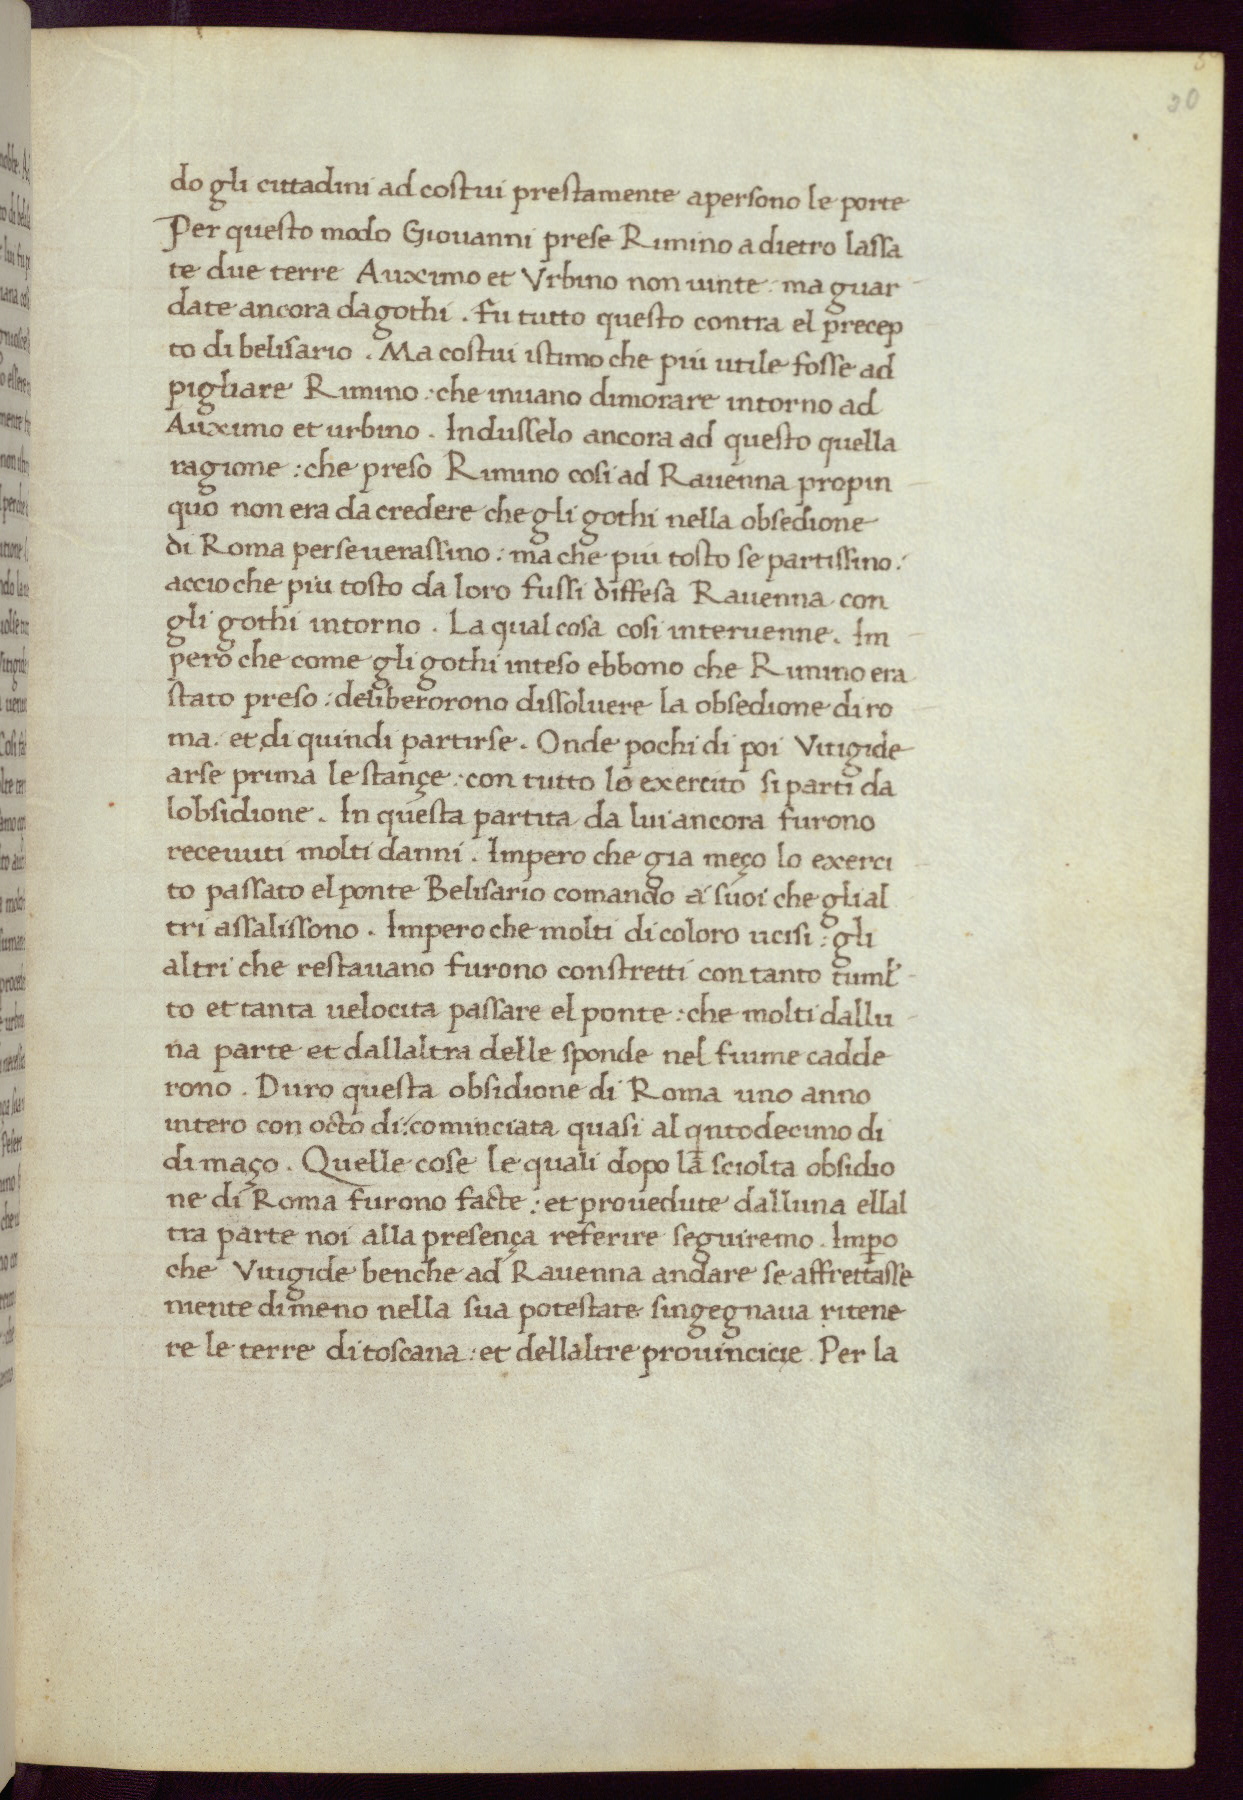 30
do gli cittadini ad costui prestamente apersono le porte
Per questo modo Giouanni prese Rimino adietro lassa
te due terre Auximo et Vrbino non uinte : ma guar
date ancora dagothi . fu tutto questo contra el precep
to di belisario . Ma costui istimo che piu utile fosse ad
pigliare Rimino : che inuano dimorare intorno ad
Auximo et urbino . Indusselo ancora ad questo quella
ragione : che preso Rimino cosi ad Rauenna propin
quo non era da credere che gli gothi nella obsedione
di Roma perseuerassino : ma che piu tosto se partissino :
accio che piu tosto da loro fussi diffesa Rauenna con
gli gothi intorno . La qual cosa cosi interuenne . Im
pero che come gli gothi inteso ebbono che Rimino era
stato preso : deliberorono dissoluere la obsedione di ro
ma . et di quindi partirse . Onde pochi di poi Vitigide
arse prima le stançe : con tutto lo exercito si parti da
lobsidione . In questa partita da lui ancora furono
receuuti molti danni . Impero che gia meço lo exerci
to passato el ponte Belisario comando a suoi che gli al
tri assalissono . Impero che molti di coloro ucisi : gli
altri che restauano furono constretti con tanto tuml̃
to et tanta uelocita passare el ponte : che molti dallu
na parte et dallaltra delle sponde nel fiume cadde
rono . Duro questa obsidione di Roma uno anno
intero con octo di : cominciata quasi al qntodecimo di
di maço . Quelle cose le quali dopo la sciolta obsidio
ne di Roma furono facte : et prouedute dalluna ellal
tra parte noi alla presença referire seguiremo . Imꝑo
che Vitigide benche ad Rauenna andare se affrettasse
mente di meno nella sua potestate singegnaua ritene
re le terre di toscana : et dellaltre prouincicie . Per la